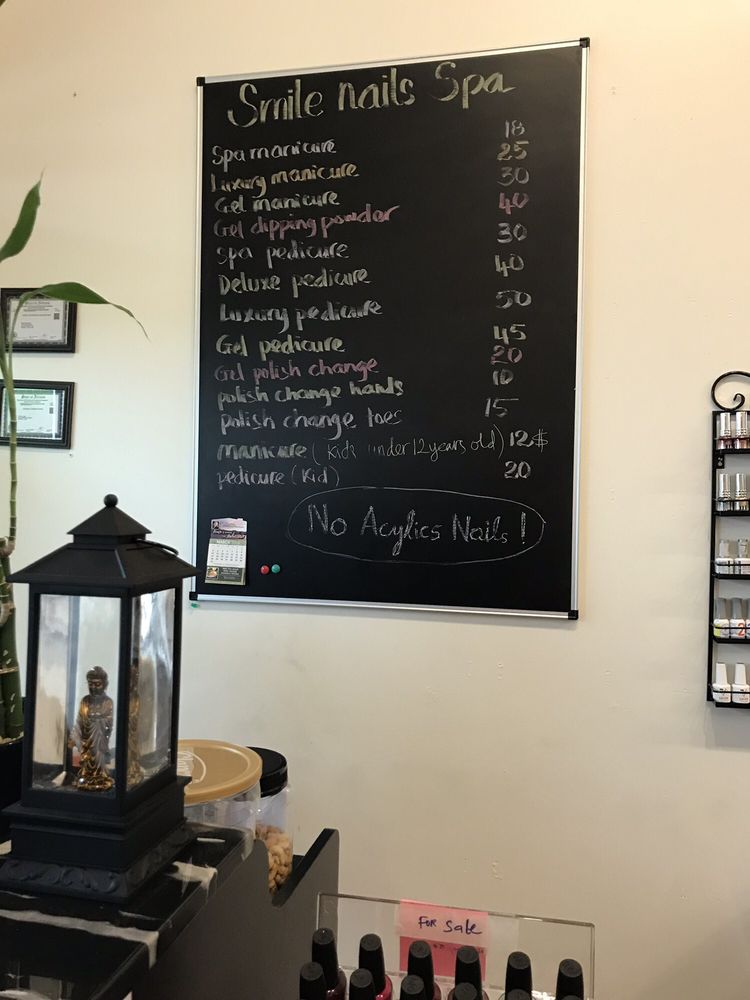 Smile nails Spa
Spa manicure 18
Luxury manicure 25
Gel manicure 30
Gel dipping powder 40
Spa pedicure 30
Deluxe pedicure 40
Luxury pedicure 50
Gel pedicure 45
Gel polish change 20
polish change hands 10
polish change toes 15
manicure (Kids under 12 years old) 12$
pedicure (Kid) 20
No Acylics Nails !
MARCH
FOR Sale